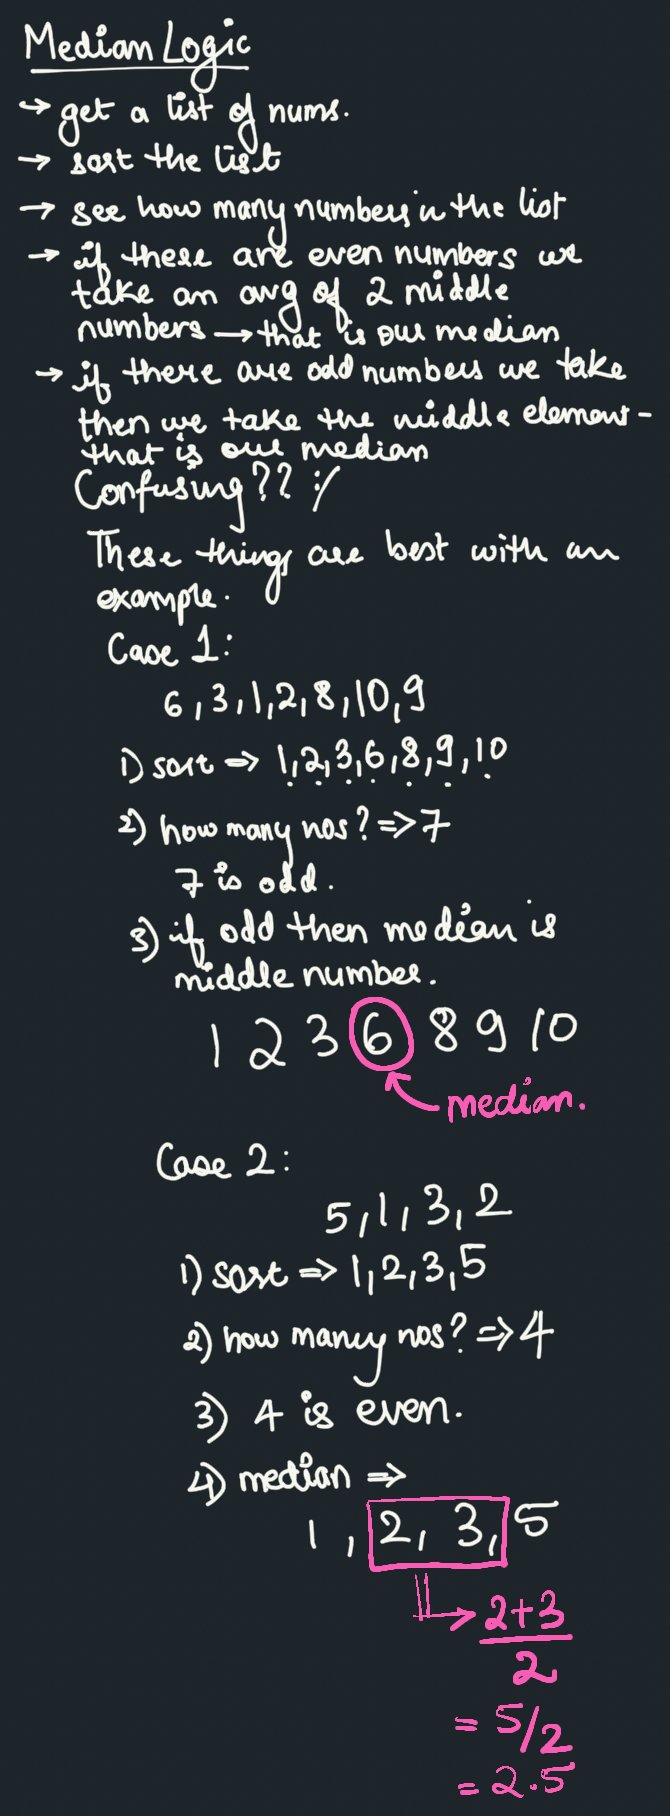 Median Logic
→ get a list of nums.
→ sort the list
→ see how many numbers in the list
→ if these are even numbers we
take an avg of 2 middle
numbers → that is our median
→ if there are odd numbers we take
then we take the middle element -
that is our median
Confusing?? :/
These things are best with an
example.
Case 1:
6, 3, 1, 2, 8, 10, 9
1) sort => 1, 2, 3, 6, 8, 9, 10
2) how many nos? => 7
7 is odd.
3) if odd then median is
middle number.
1 2 3 6 8 9 10
median.
Case 2:
5, 1, 3, 2
1) sort => 1, 2, 3, 5
2) how many nos? => 4
3) 4 is even.
4) median =>
1, 2, 3, 5
→ 2+3
2
= 5/2
= 2.5